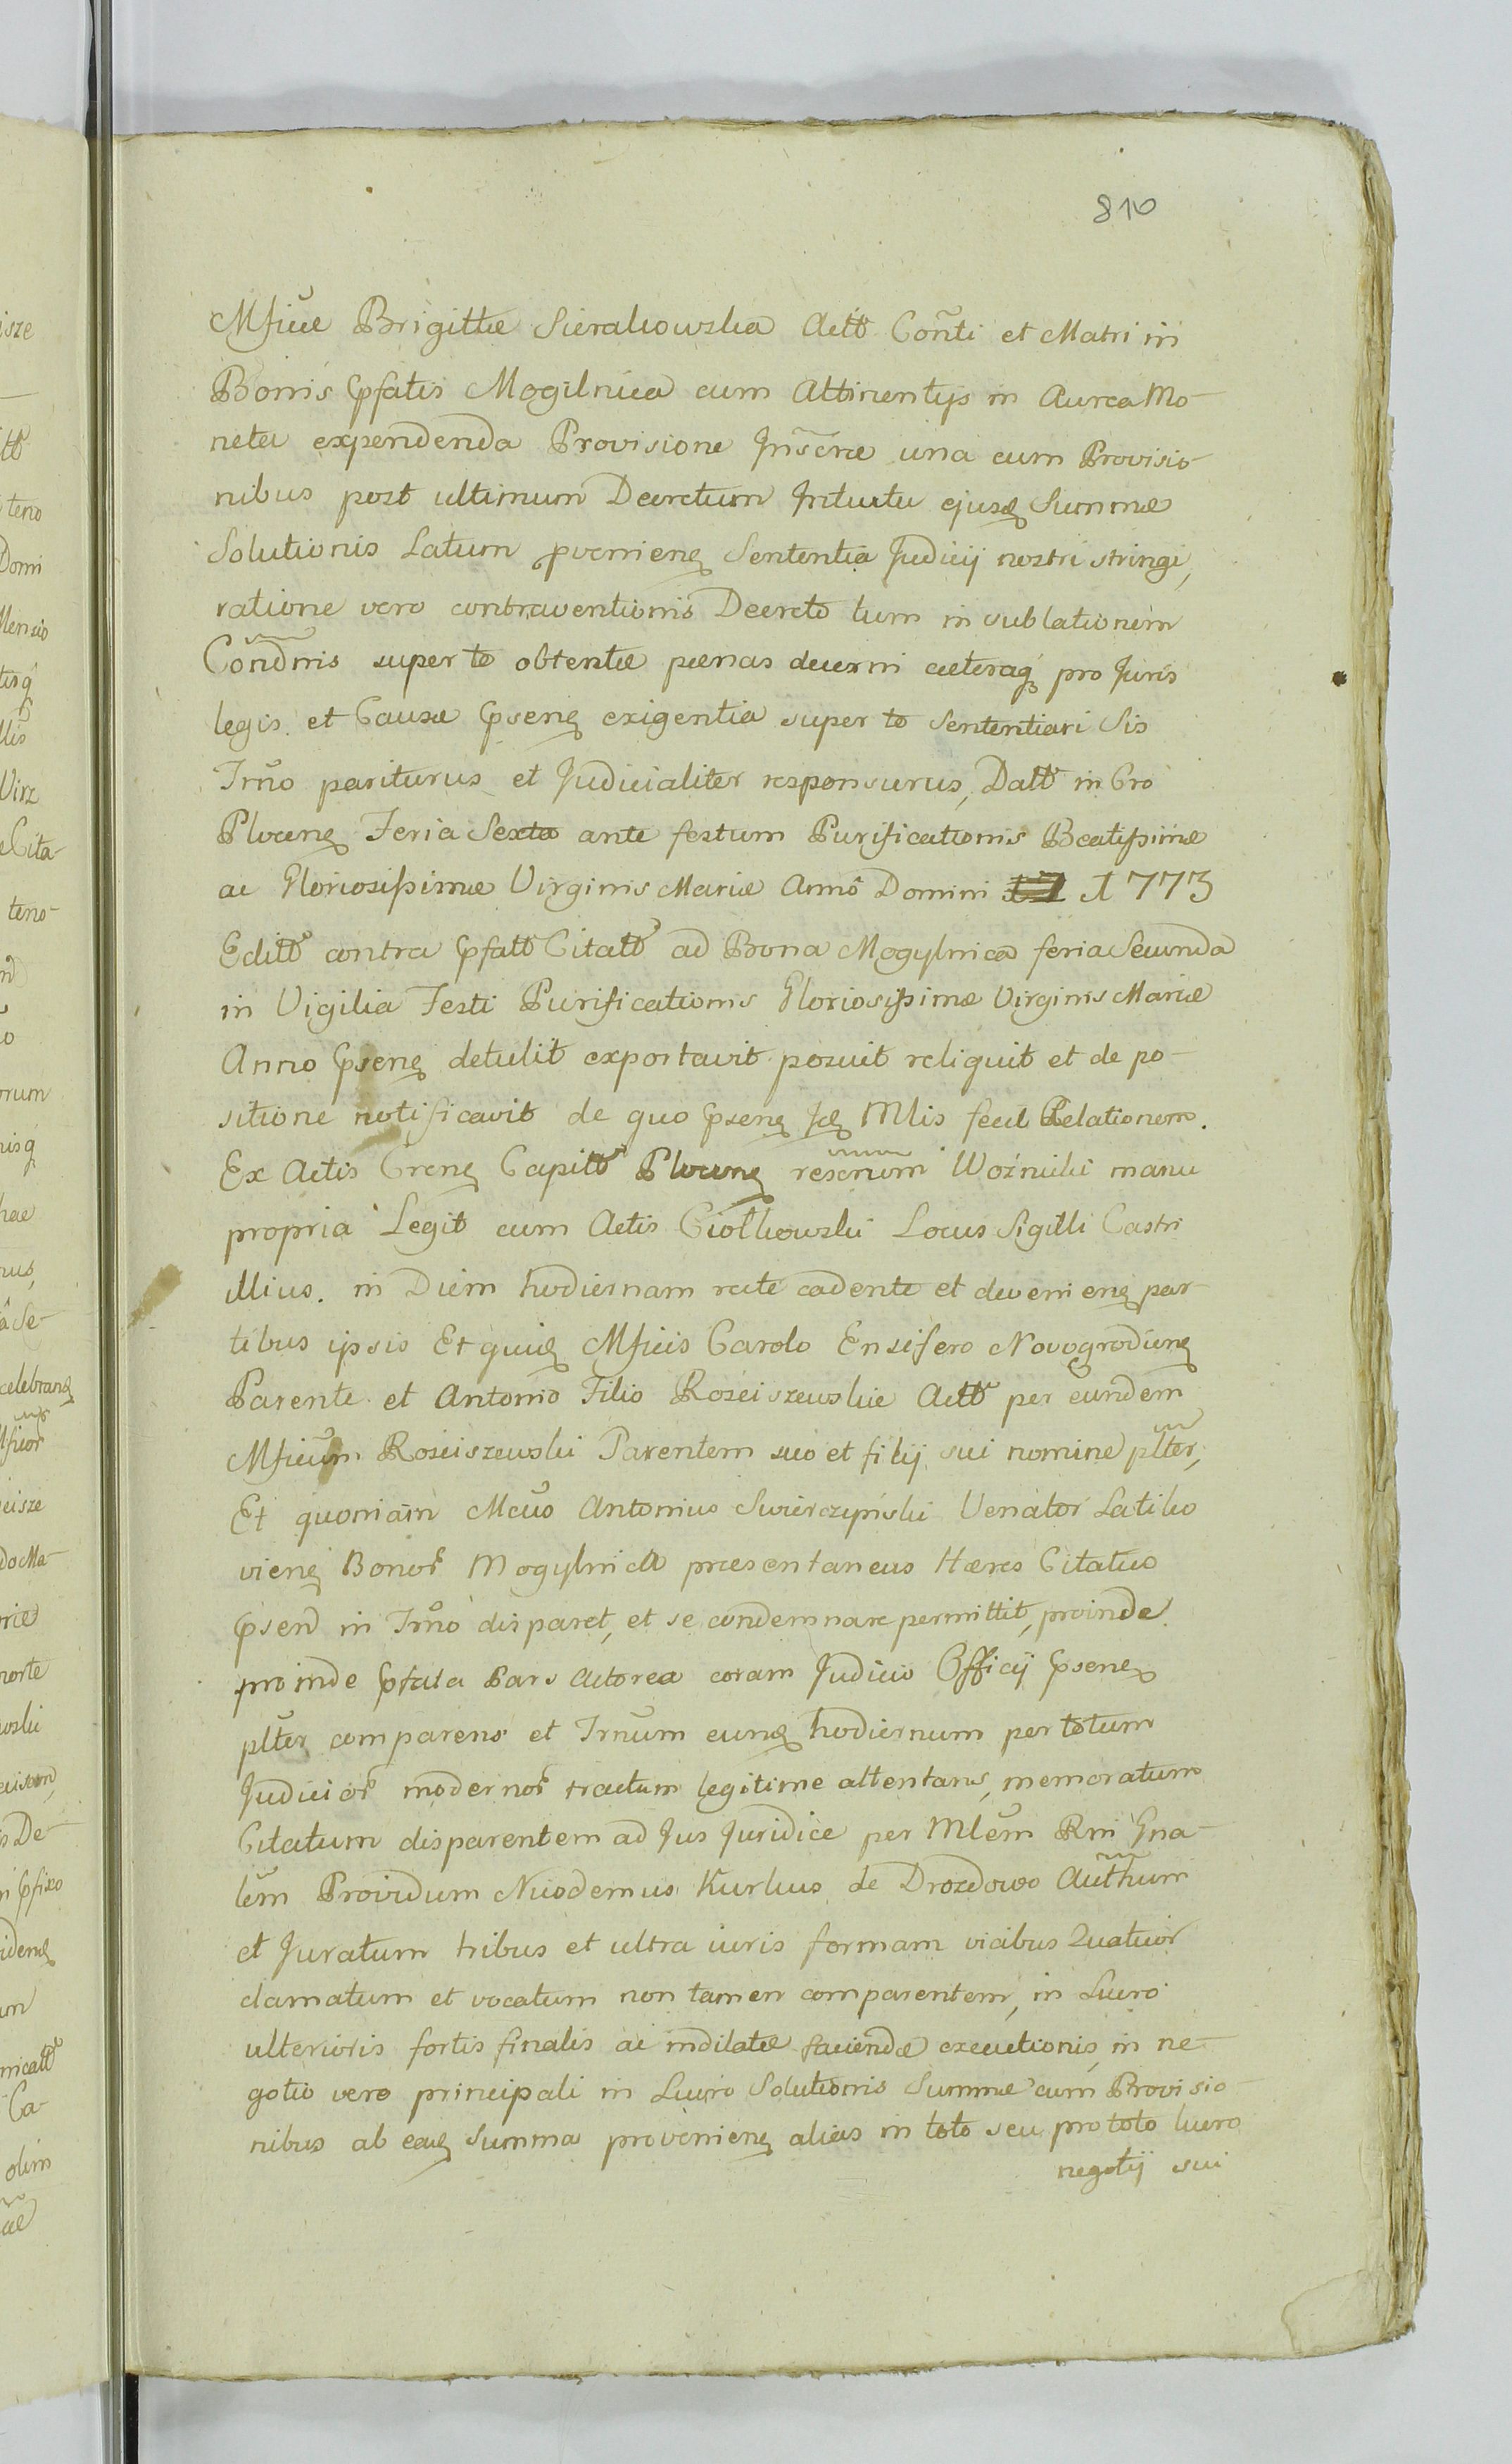 810
Mficae Brigittae Sierakowska Actt Conti et Matri in
Bonis Ppfatis Mogilnica cum Attinentijs in Aurea Mo-
neta expendenda Provisione Inscrae una cum Provisio-
nibus post ultimum Decretum Intuitu ejusq Summae
Solutionis Latum pvenienq Sententia Judicij nostri stringi,
ratione vero contraventionis Decreto tum in sublationem
Condnis super te obtentae paenas decerni caeteraq pro Juris
legis et Causae Ppsenq exigentia super te Sententiari Sis
Trno pariturus et Judicialiter responsurus, Datt in Cro
Plocenq Feria Sexta ante festum Purificationis Beatissimae
ac Gloriosissimae Virginis Mariae Anno Domini 1773
Editt contra Ppfatt Citatt ad Bona Mogylnica feria Secunda
in Vigilia Festi Purificationis Gloriosissimae Virginis Mariae
Anno Ppsenq detulit exportavit posuit reliquit et de po-
sitione notificavit de quo Ppsenq Idq Mlis fecit Relationem.
Ex Actis Crenq Capitt Plocenq rescrum Woźnicki manu
propria Legit cum Actis Ciołkowski Locus Sigilli Castri
illius. in Diem hodiernam rite cadente et devenienq par-
tibus ipsis Et quidq Mficis Carolo Ensifero Novogrodienq
Parente et Antonio Filio Rosciszewskie Actt per eundem
Mficum Rosciszewski Parentem suo et filij sui nomine plter,
Et quoniam Mcus Antonius Swierczyński Venator Latiko
vienq Bonor Mogylnica praesentaneus Haeres Citatus
Ppsend in Trno disparet, et se condemnare permittit, proinde
proinde Ppfata Pars Actorea coram Judicio Officij Ppsenq
plter comparens et Trnum eunq hodiernum per totum
Judicior modernor tractum legitime attentans, memoratum
Citatum disparentem ad Jus Juridice per Mlem Rni Gna-
lem Providum Nicodemus Kurkus de Drozdowo Authum
et Juratum tribus et ultra iuris formam vicibus Quatuor
clamatum et vocatum non tamen comparentem, in Lucro
ulterioris fortis finalis ac indilatae faciendae executionis, in ne-
gotio vero principali in Lucro Solutionis Summae cum Provisio-
nibus ab eaq Summa provenienq alias in toto seu pro toto lucro
negotij sui